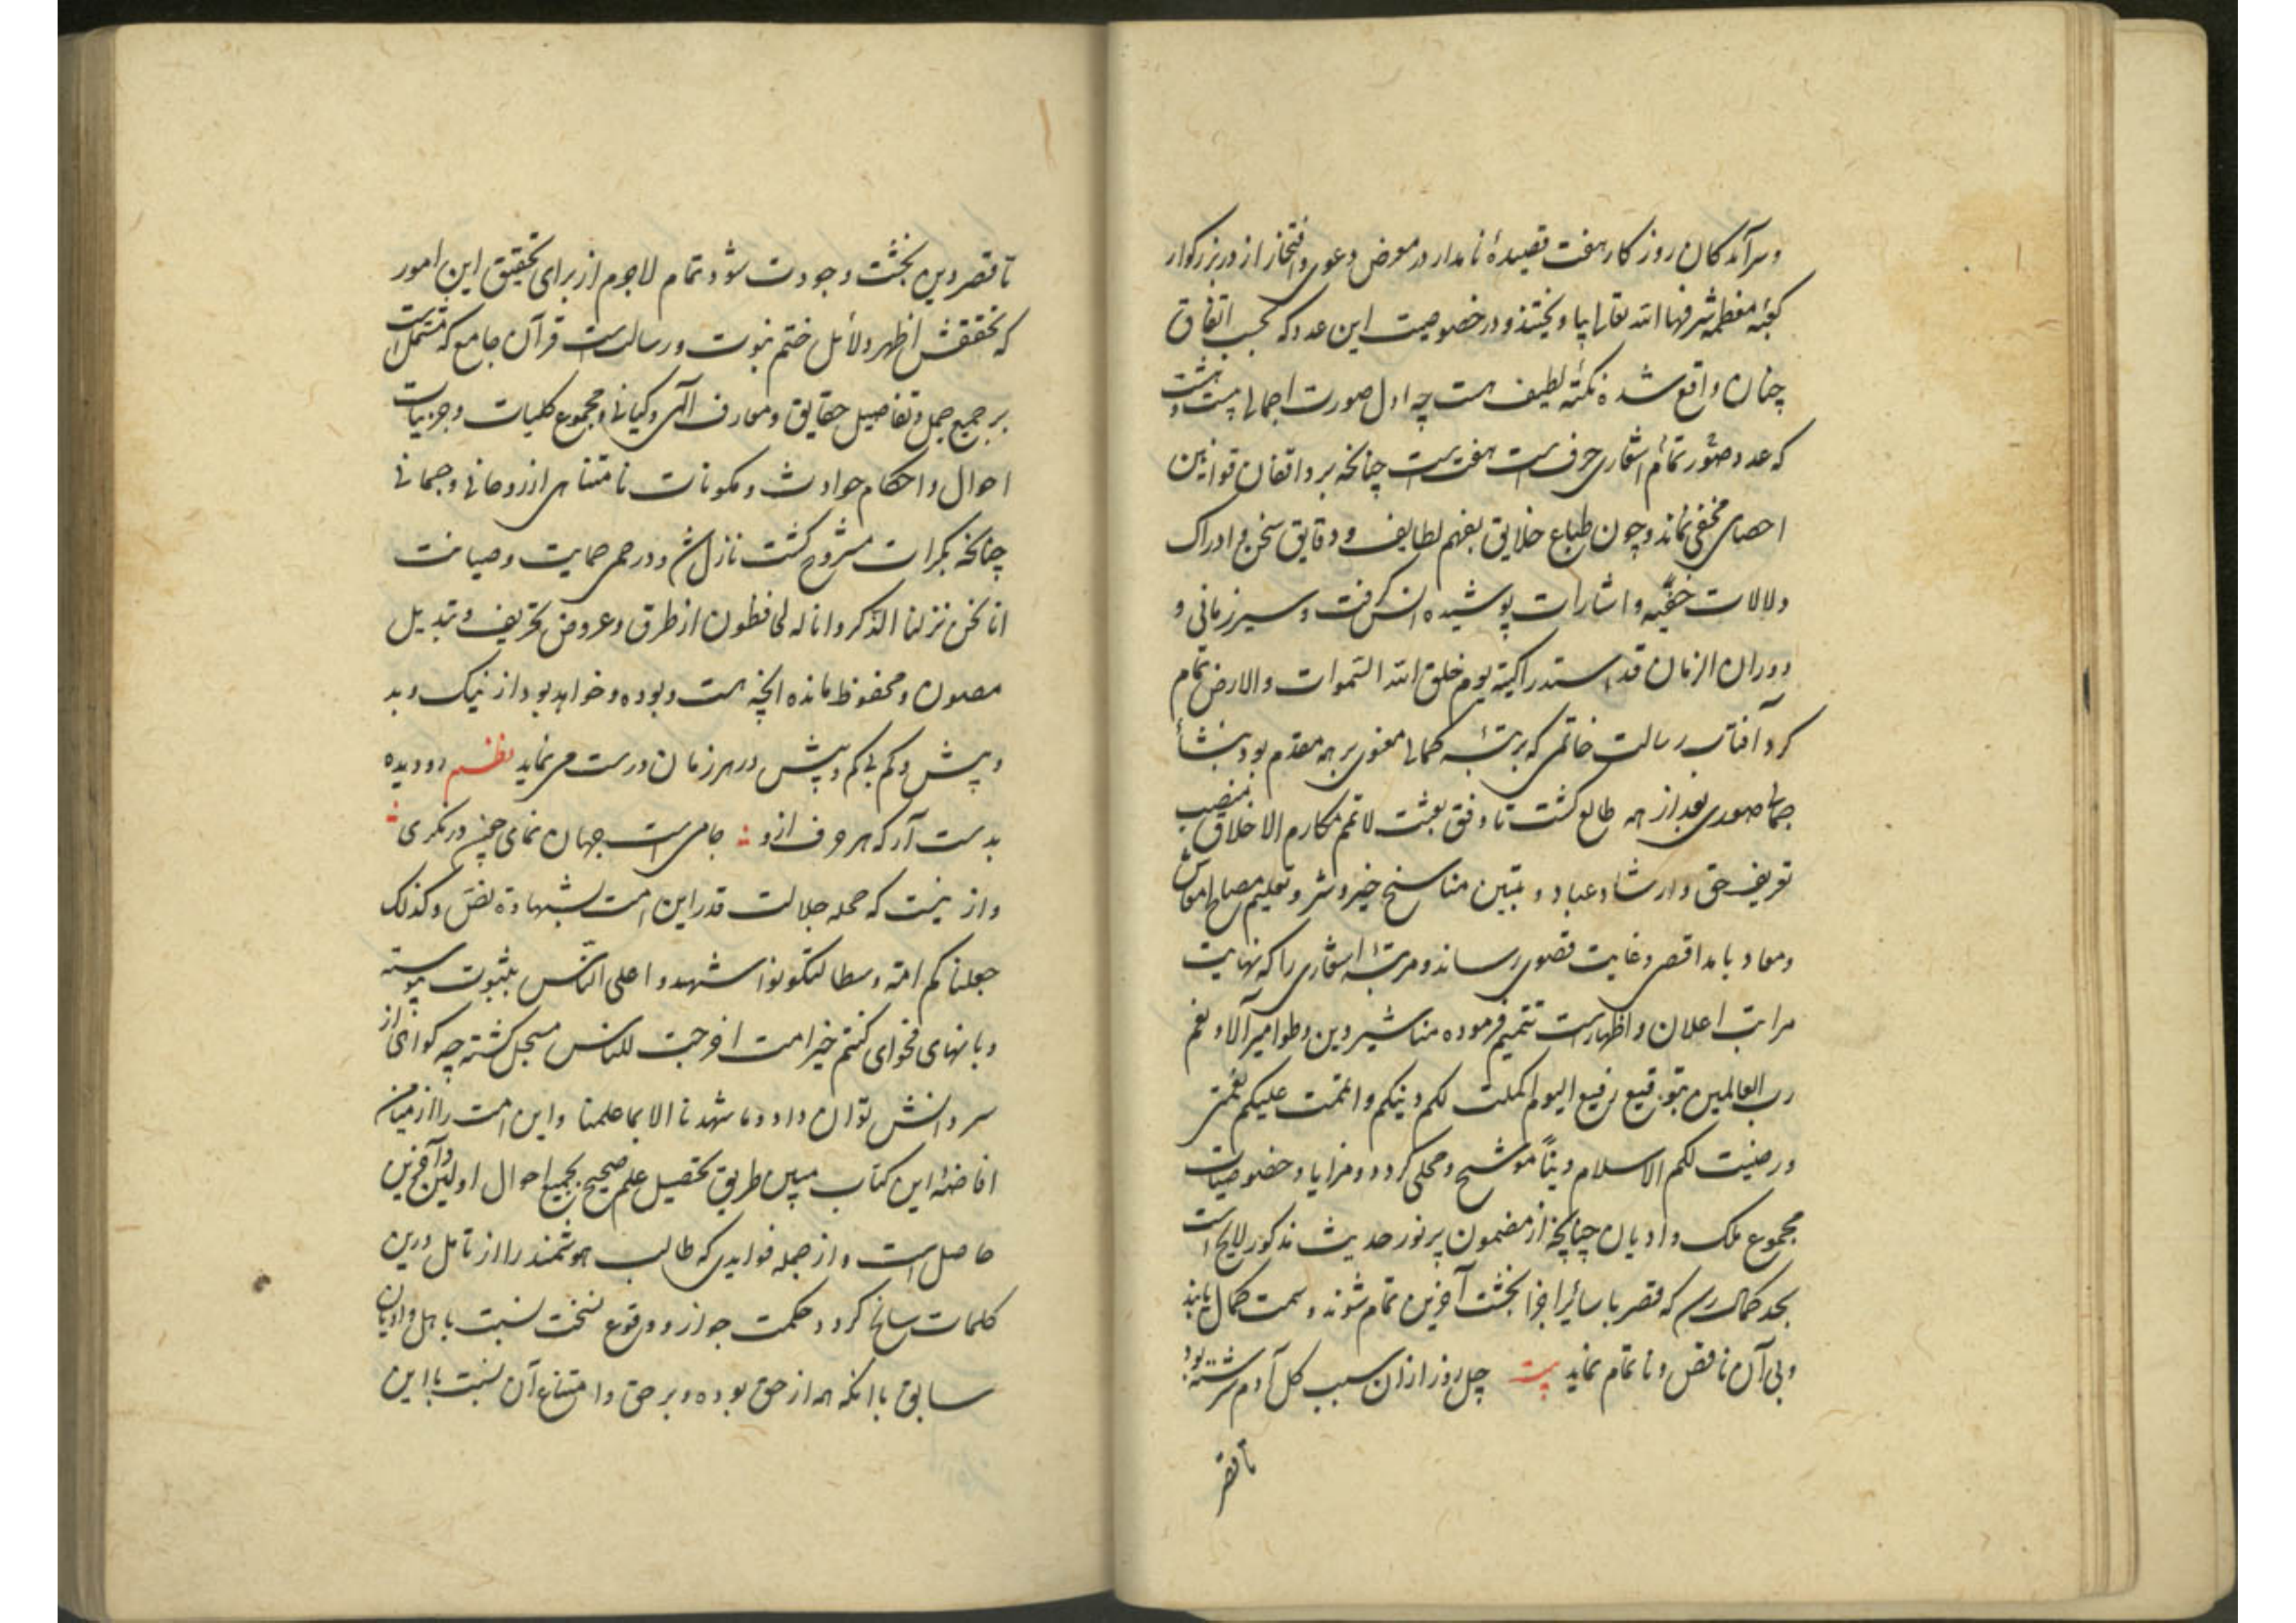 وسرآمدکان روزکار هفت قصیدهٔ نامدار در معرض دعوی و افتخار از در بزرکوار
کعبهٔ معظمه شرفها الله تعالی بیاویختند و در خصوصیت این عدد که بحسب اتفاق
چنان واقع شده نکتهٔ لطیف هست چه اول صورت اجمالی بیست و هشت
که عدد صور تمام اشعاری حرف است هفت است چنانکه بر واقفان قوانین
احصای مخفی نماند و چون طباع خلایق بفهم لطایف و دقایق سخن و ادراک
دلالات خفیه و اشارات پوشیده انس کرفت و سیر زمانی و
دوران الزمان قد استدار کهیئته یوم خلق الله السموات والارض تمام
کرد آفتاب رسالت خاتمی که برتبهٔ کمالی معنوی بر همه مقدم بود بنشأ
جمالی صوری بعد از همه طالع کشت تا وفق بعثت لاتمم مکارم الاخلاق منصب
تعریف حق و ارشاد عباد و تبیین مناسخ خیر و شر و تعلیم مصالح معاش
و معاد بامد اقصی و غایت قصوی رساند و مرتبهٔ اشعاری را که نهایت
مراتب اعلان و اظهار است تتمیم فرموده مناشیر دین و طوامیر آلاء و نعم
رب العالمین بتوقیع رفیع الیوم اکملت لکم دینکم و اتممت علیکم نعمتی
و رضیت لکم الاسلام دیناً موشح و محلی کردد و مزایا و خصوصیات
مجموع ملک و ادیان چنانچه از مضمون پر نور حدیث مذکور لایح است
بحد کمال رسد که قصر با سائر اجزا بخشت آخرین تمام شوند و سمت کمال یابند
و بی آن ناقص و ناتمام نماید بیت چل روز ازان سبب کل آدم سرشته بود
تا قصر
تا قصر دین بخشت وجودت شود تمام لاجرم از برای تحقیق این امور
که تحققش اظهر دلائل ختم نبوت و رسالت است قرآن جامع که مشتمل است
بر جمیع جمل و تفاصیل حقایق و معارف الهی و کیانی و مجموع کلیات و جزییات
احوال و احکام حوادث و مکونات نامتناهی از روحانی و جسمانی
چنانکه بکرات مشروح کشت نازل شد و در حمی حمایت و صیانت
انا نحن نزلنا الذکر و انا له لحافظون از طرق و عروض تحریف و تبدیل
مصون و محفوظ مانده انچه هست و بوده و خواهد بود از نیک و بد
و بیش و کم بی کم و بیش در هر زمان درست می نماید نظم دو دیده
بدست آر که هر حرف ازو جامی است جهان نمای چون درنکری
و از ینست که جمله جلالت قدر این امت بشهادة نص و کذلک
جعلناکم امة وسطا لتکونوا شهداء علی الناس بثبوت پیوسته
و بانهای فحوای کنتم خیر امت اخرجت للناس مسجل کشته چه کواهی از
سر دانش توان داد و ما شهدنا الا بما علمنا و این امت را از میامن
افاضهٔ این کتاب مبین طریق تحصیل علم صحیح بجمیع احوال اولین و آخرین
حاصل است و از جمله فوایدی که طالب هوشمند را از تامل درین
کلمات سانح کردد حکمت جواز و وقوع نسخت نسبت با ملل و ادیان
سابق باانکه همه از حق بوده و بر حق و امتناع آن نسبت با این